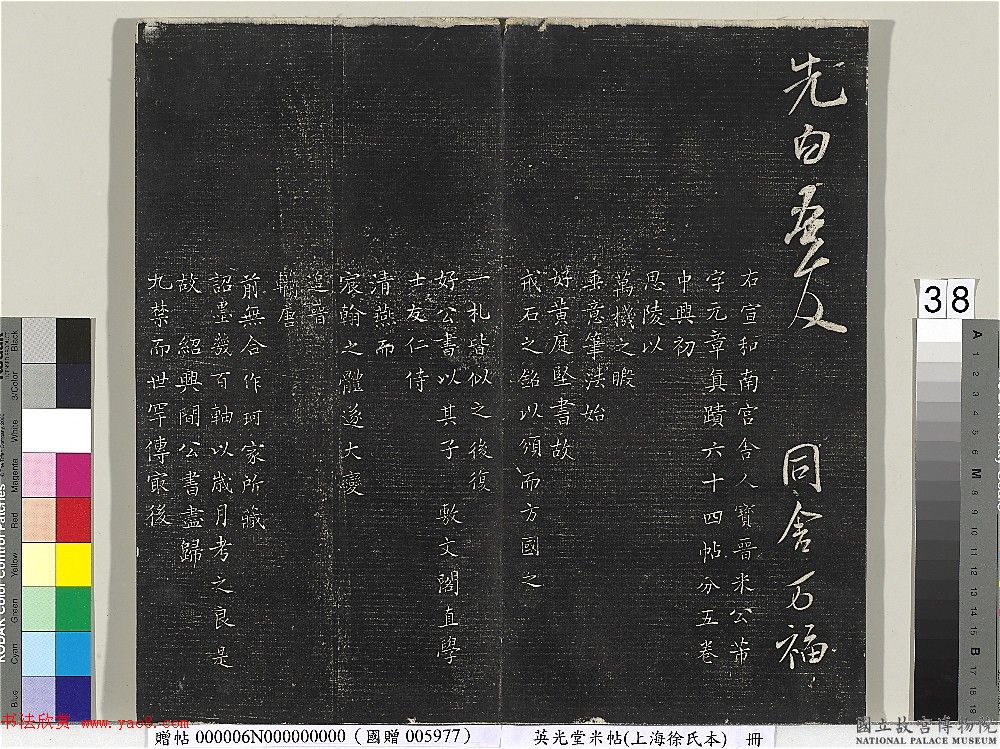 先白 吾友 同舍万福
右宣和南宮舍人寶晉米公芾
字元章真蹟六十四帖分五卷
中興初
思陵以
萬機之暇
垂意筆法始
好黃庭堅書故
戒石之銘以頒而方國之
一札皆似之後復
好公書以其子敷文閣直學
士友仁侍
清燕而
宸翰之體遂大變
追晉
轢唐
前無合作珂家所藏
詔墨發百軸以歲月考之良是
故紹興間公書盡歸
九禁而世罕傳冣後
38
KODAK Color Control Patches
Blue
Cyan
Green
Yellow
Red
Magenta
White
3/Color
Black
A 1 2 3 4 5 6 M 8 9 10 11 12 13 14 15 B 17 18 19
书法欣赏 www.yac8.com
贈帖 000006N000000000（國贈 005977）
英光堂米帖(上海徐氏本) 冊
國立故宮博物院
NATIONAL PALACE MUSEUM